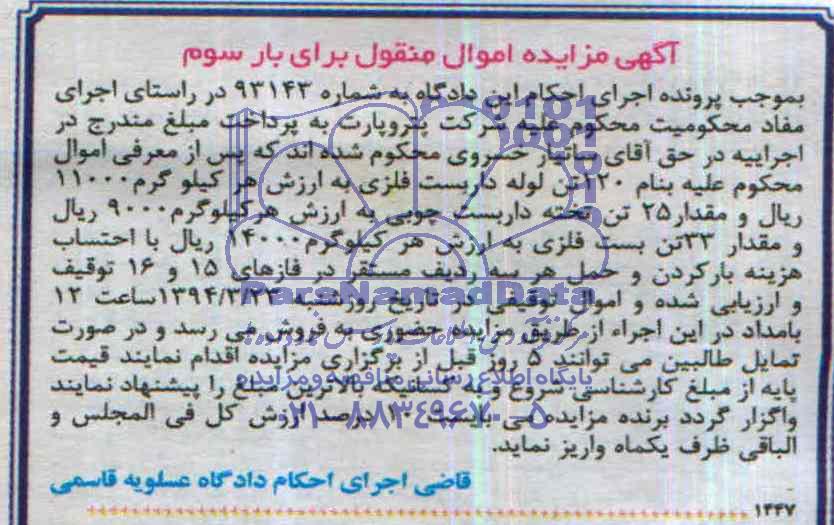 آگهی مزایده اموال منقول برای بار سوم
بموجب پرونده اجرای احکام این دادگاه به شماره ۹۳۱۴۳ در راستای اجرای
مفاد محکومیت محکوم علیه شرکت پتروپارت به پرداخت مبلغ مندرج در
اجراییه در حق آقای ساتیار خسروی محکوم شده اند که پس از معرفی اموال
محکوم علیه بنام ۱۲۰تن لوله داربست فلزی به ارزش هر کیلو گرم۱۱۰۰۰
ریال و مقدار۲۵ تن تخته داربست چوبی به ارزش هرکیلوگرم۹۰۰۰ ریال
و مقدار ۳۳تن بست فلزی به ارزش هر کیلوگرم۱۴۰۰۰ ریال با احتساب
هزینه بارکردن و حمل هر سه ردیف مستقر در فازهای ۱۵ و ۱۶ توقیف
و ارزیابی شده و اموال توقیفی در تاریخ روزشنبه ۱۳۹۴/۳/۲۳ساعت ۱۲
بامداد در این اجراء از طریق مزایده حضوری به فروش می رسد و در صورت
تمایل طالبین می توانند ۵ روز قبل از برگزاری مزایده اقدام نمایند قیمت
پایه از مبلغ کارشناسی شروع و به کسانیکه بالاترین مبلغ را پیشنهاد نمایند
واگزار گردد برنده مزایده می بایست ۱۰ درصد ارزش کل فی المجلس و
الباقی ظرف یکماه واریز نماید.
قاضی اجرای احکام دادگاه عسلویه قاسمی
۱۴۴۷
ParsNamadData
پایگاه اطلاع رسانی مناقصه و مزایده
۰۲۱-۸۸۳۴۹۶۷۰-۵